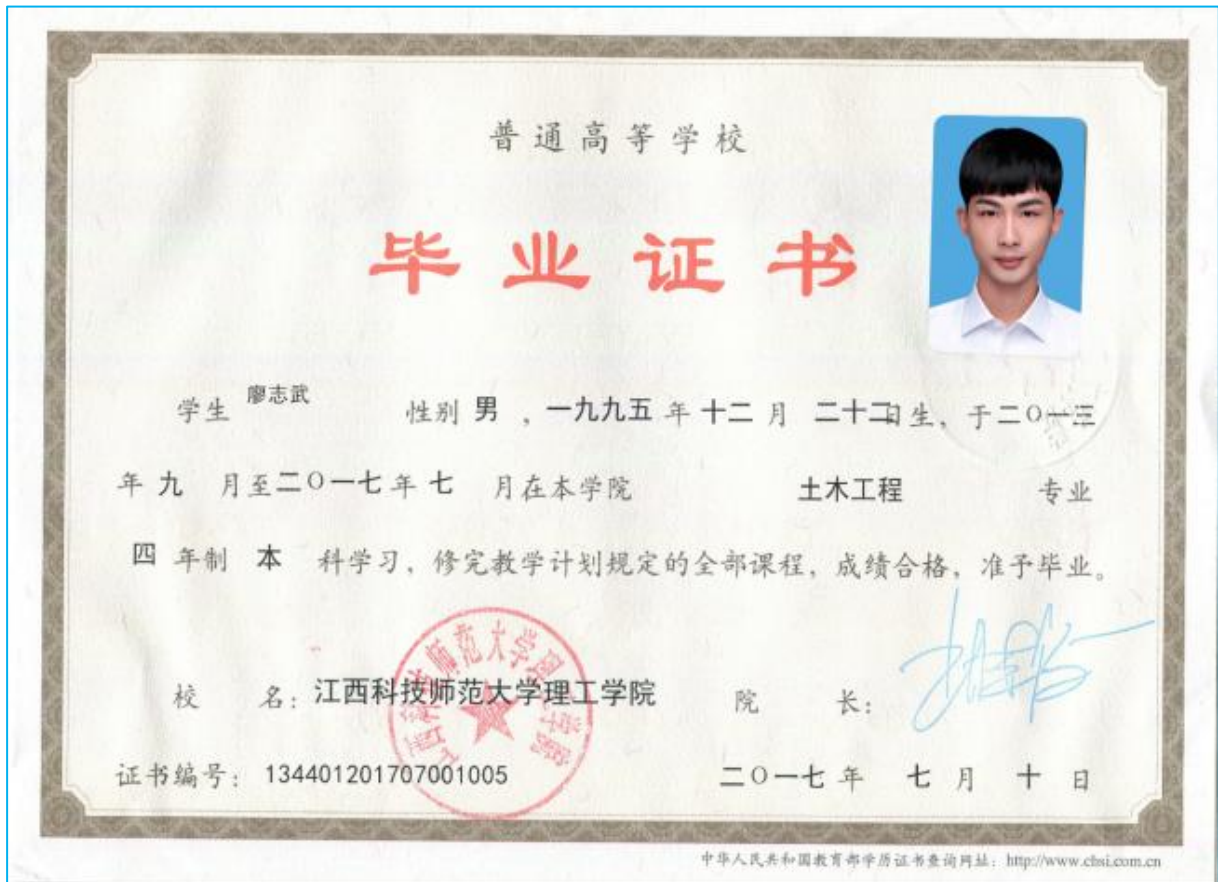 普通高等学校
毕业证书
学生 廖志武 性别 男 , 一九九五 年 十二 月 二十二日生, 于二〇一三
年 九 月至二〇一七年 七 月在本学院 土木工程 专业
四 年制 本 科学习, 修完教学计划规定的全部课程, 成绩合格, 准予毕业。
校 名: 江西科技师范大学理工学院 院 长:
江西科技师范大学理工学院
证书编号: 134401201707001005 二〇一七年 七月 十日
中华人民共和国教育部学历证书查询网址: http://www.chsi.com.cn